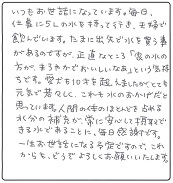 いつもお世話になっています。毎日、
仕事に5Lの水を持って行き、夫婦で
飲んでいます。たまに出先で水を買う事
があるのですが、正直なところ「家の水の
方が、まろやかでおいしいなあ」という気持
ちです。愛犬も10才を超えましたが、とても
元気で若々しく、これも水のおかげだと
思っています。人間の体のほとんどを占める
水分の補充が、常に安心して摂取で
きる水であることに、毎日感謝です。
一生お世話になる予定ですので、これ
からも、どうぞよろしくお願いいたします。